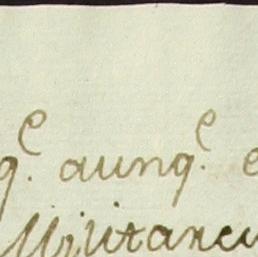 q.e aunq.e e
Militarcu